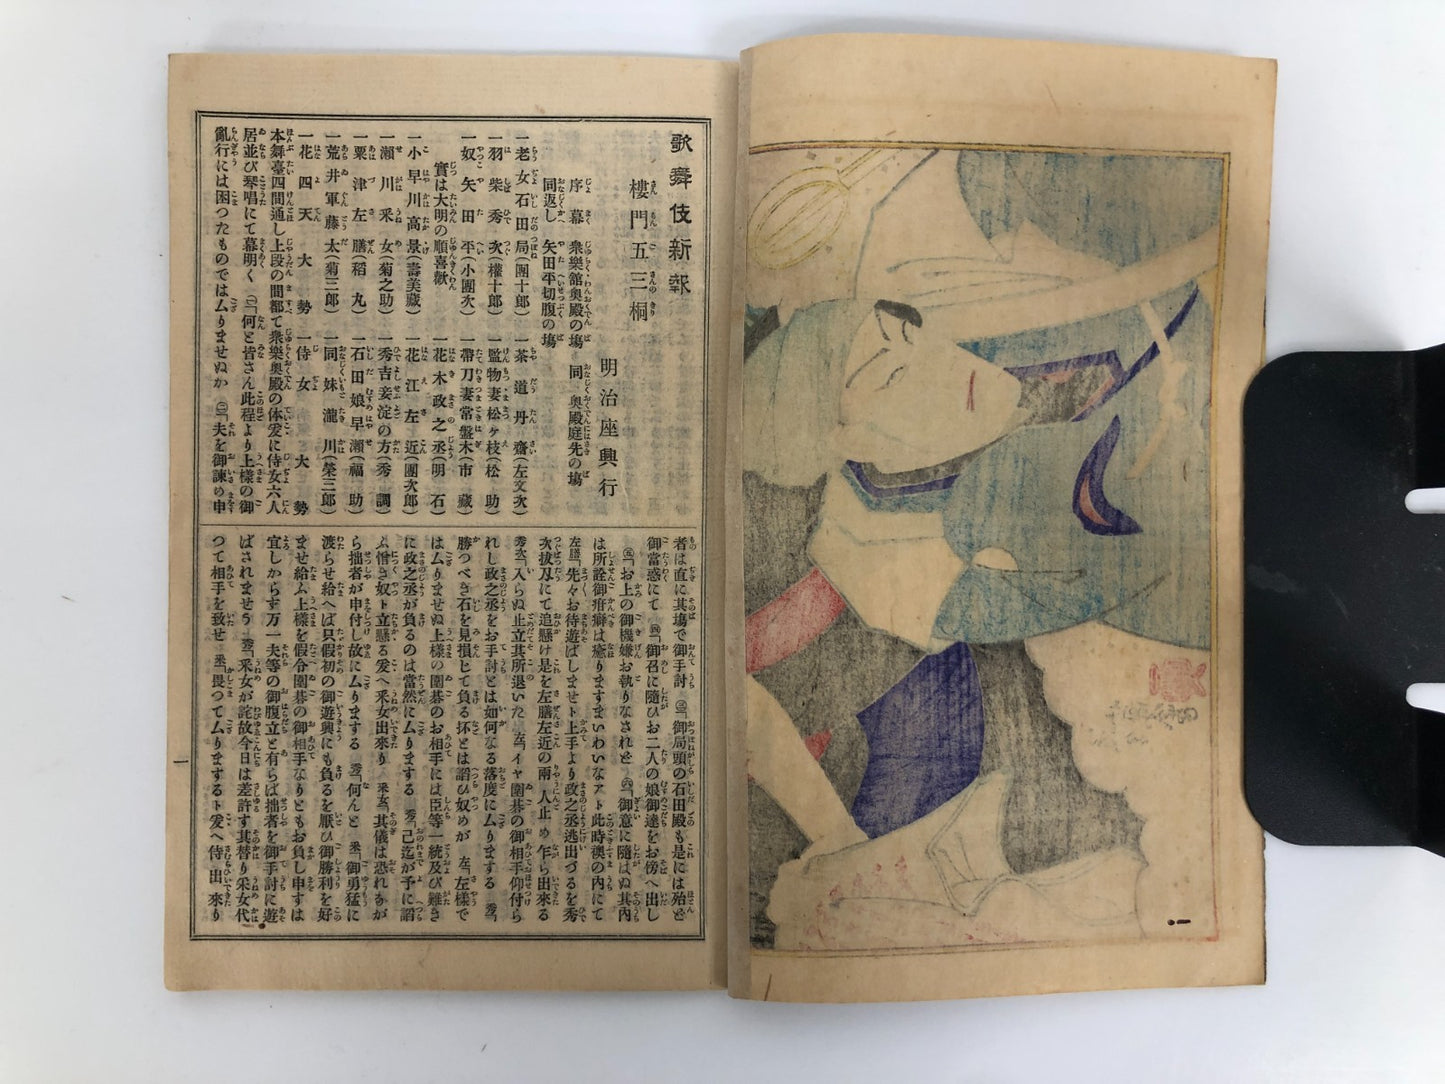 歌舞伎新報
樓門五三桐
明治座興行
序幕 衆樂館奥殿の塲 同 奥殿庭先の塲
同返し 矢田平切腹の塲
一老女石田局(團十郎) 一茶道丹齋(左文次)
一羽柴秀次(權十郎) 一監物妻松ヶ枝(松助)
一奴矢田平(小團次) 一帶刀妻常盤木(市藏)
實は大明の順喜歡 一花木政之丞(明石)
一小早川高景(壽美藏) 一花江左近(團次郎)
一瀬川釆女(菊之助) 一秀吉妾淀の方(秀調)
一粟津左膳(稻丸) 一石田娘早瀬(福助)
一荒井軍藤太(菊三郎) 一同妹瀧川(榮三郎)
一花四天大勢 一侍女大勢
本舞臺四間通し上段の間都て衆樂奥殿の体爰に侍女六人
居並び琴唱にて幕明く (一)「何と皆さん此程より上様の御
亂行には困つたものでは厶りませぬか (二)「夫を御諫め申
者は直に其塲で御手討 (三)「御局頭の石田殿も是には殆ど
御當惑にて (四)「御召に隨ひお二人の娘御達をお傍へ出し
(五)「お上の御機嫌お執りなされど (六)「御意に隨はぬ其内
は所詮御疳癖は癒りますまいわいなアト此時襖の内にて
左膳「先々お待遊ばしませト上手より政之丞逃出づるを秀
次拔刀にて追懸け是を左膳左近の兩人止め乍ら出來る
秀次「入らぬ止立其所退いた 左「イヤ圍碁の御相手仰付ら
れし政之丞をお手討とは如何なる落度に厶りまする 秀「
勝つべき石を見損じて負る抔とは諂ひ奴めが 左「左樣で
は厶りませぬ上様の圍碁のお相手には臣等一統及び難き
に政之丞が負るのは當然に厶りまする 秀「己迄が予に諂
ふ憎き奴ト立懸る爰へ釆女出來り 釆女「其儀は恐れなが
ら拙者が申付し故に厶りまする 秀「何んと 釆「御勇猛に
渡らせ給へば只假初の御遊興にも負るを厭ひ御勝利を好
ませ給ふ上様を假令圍碁の御相手なりともお負し申すは
宜しからす万一夫等の御腹立と有らば拙者を御手討に遊
ばされませう 秀「釆女が詫故今日は差許す其替り釆女代
つて相手を致せ 釆「畏つて厶りまするト爰へ侍出來り
一